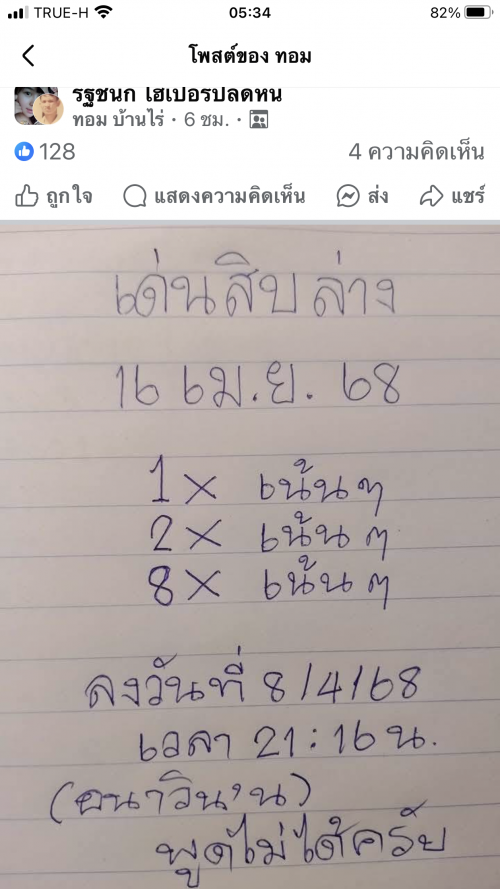 TRUE-H 05:34 82%
โพสต์ของ ทอม
รฐชนก ไฮเปอร์ปลดหนี้
ทอม บ้านไร่ · 6 ชม. ·
128 4 ความคิดเห็น
ถูกใจ แสดงความคิดเห็น ส่ง แชร์
เด่นสิบล่าง
16 เม.ย. 68
1x เน้นๆ
2x เน้นๆ
8x เน้นๆ
ลงวันที่ 8/4/68
เวลา 21:16 น.
พูดไม่ได้ครับ